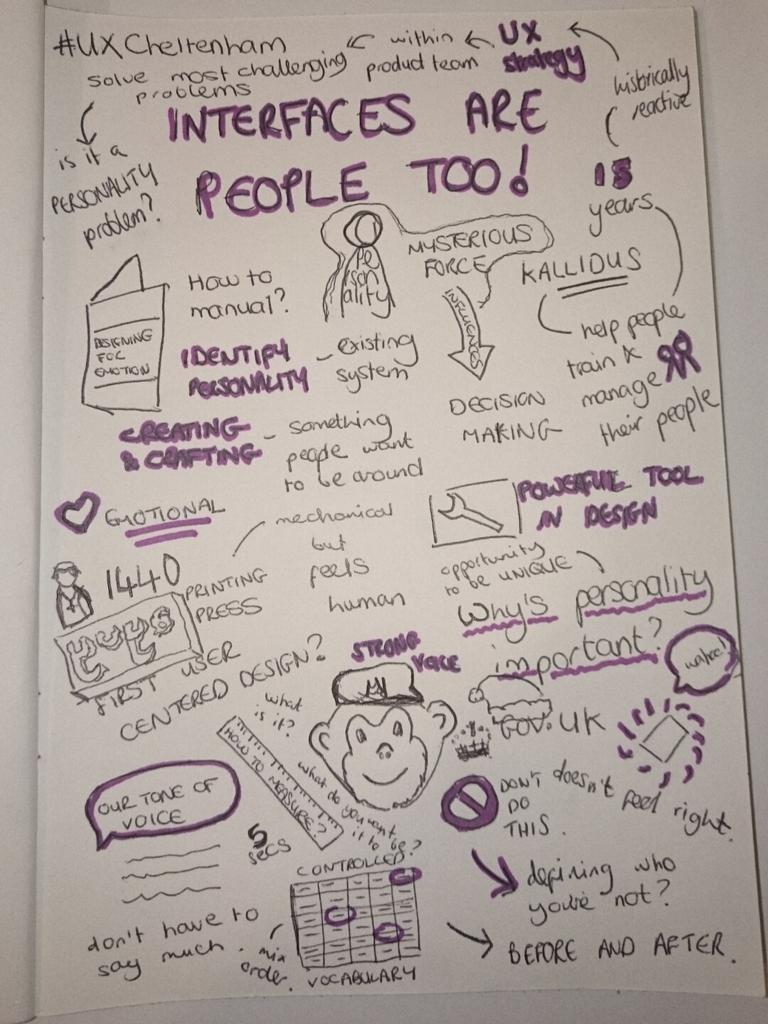 #UXCheltenham
within
product team
UX
strategy
solve most challenging
problems
historically
reactive
is it a
PERSONALITY
problem?
INTERFACES ARE
PEOPLE TOO!
15
years
KALLIDUS
help people
train &
manage
their people
Personality
MYSTERIOUS
FORCE
INFLUENCES
DECISION
MAKING
DESIGNING
FOR
EMOTION
How to
manual?
IDENTIFY
PERSONALITY
- existing
system
CREATING
& CRAFTING
- something
people want
to be around
EMOTIONAL
POWERFUL TOOL
IN DESIGN
opportunity
to be UNIQUE
Why's personality
important?
1440
PRINTING
PRESS
mechanical
but
feels
human
FIRST USER
CENTERED DESIGN?
STRONG
VOICE
GOV.UK
DON'T
DO
THIS.
doesn't
feel right.
what
is it?
HOW TO MEASURE?
what do you want
it to be?
OUR TONE OF
VOICE
5
secs
don't have to
say much.
CONTROLLED
VOCABULARY
mix
order.
defining who
you're not?
BEFORE AND AFTER.